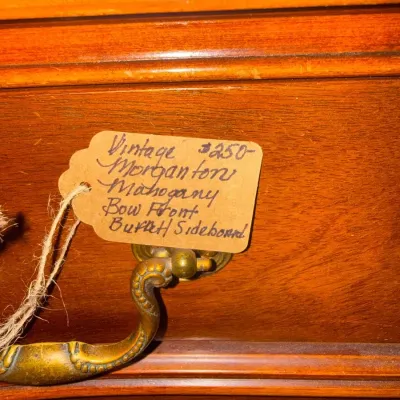 Vintage $250-
Morganton
Mahogany
Bow Front
Buffet/Sideboard